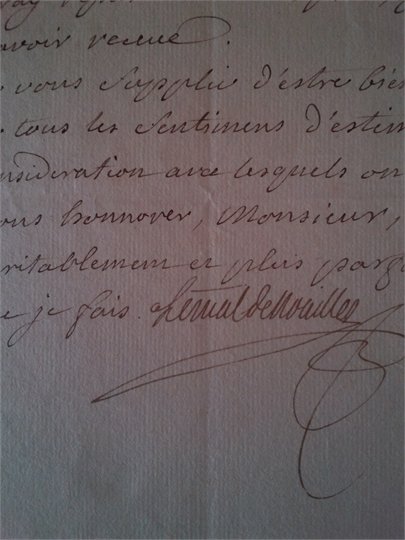 avoir receue.
vous supplie d'estre bien
tous les sentimens d'estim
nsideration avec lesquels on
ous honnorer, Monsieur,
ritablement et plus parfa
e je fais. le mal de Noailles